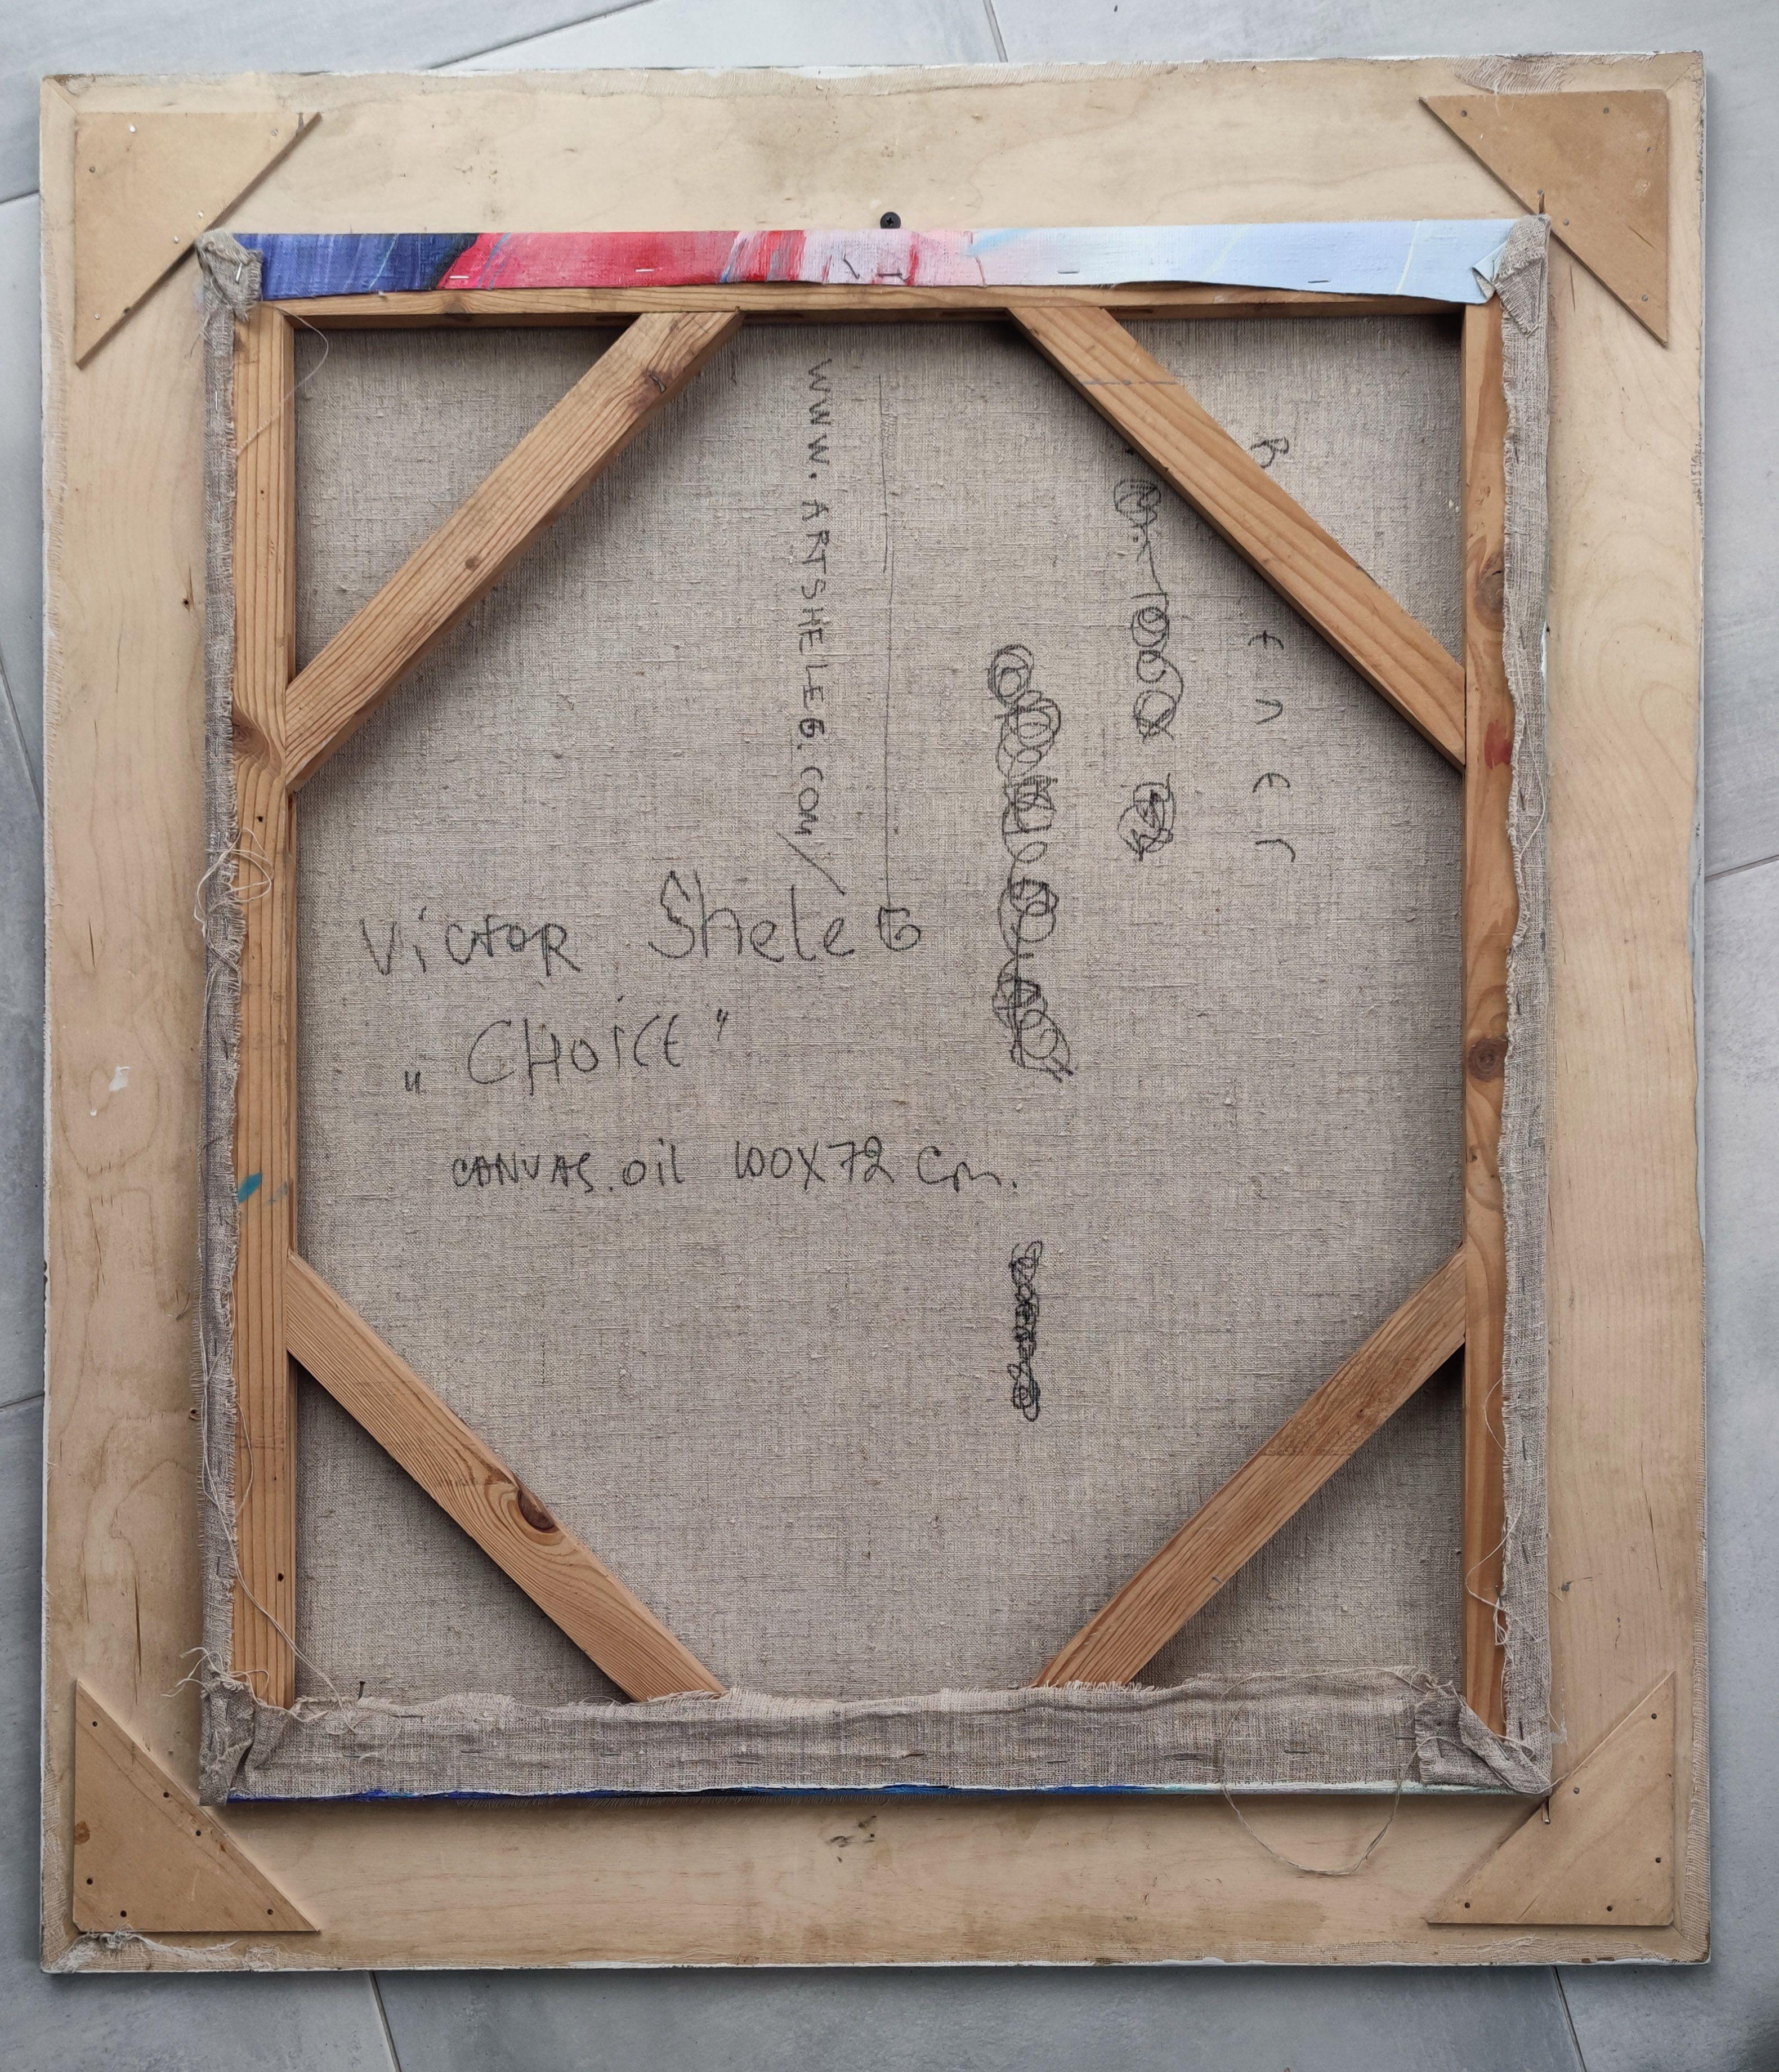 Victor Sheleg
„CHOICE"
CANVAS. oil 100X72 Cm.
WWW.ARTSHELEG.COM/